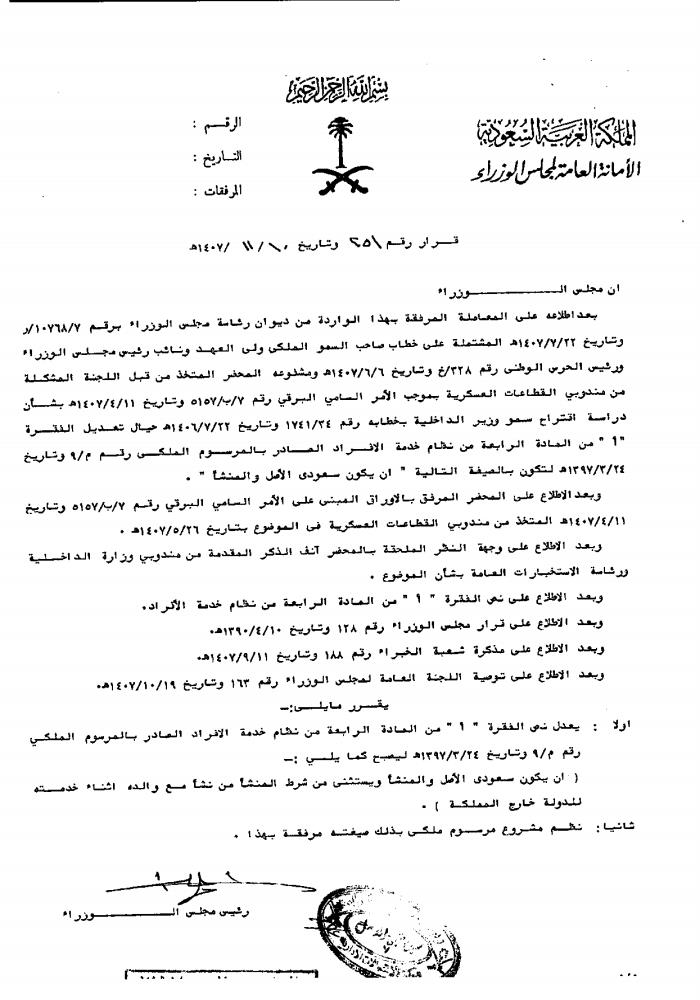 بسم الله الرحمن الرحيم
المملكة العربية السعودية
الأمانة العامة لمجلس الوزراء
الرقــم :
التـاريخ :
المرفقات :
قـرار رقم ٢٥١ وتاريخ ١٠/ ١١ /١٤٠٧هـ
ان مجلس الــــــــــوزراء
بعد اطلاعه على المعاملة المرفقة بهذا الواردة من ديوان رئاسة مجلس الوزراء برقم ١٠٧٦٨/٧/ر
وتاريخ ١٤٠٧/٧/٢٢هـ المشتملة على خطاب صاحب السمو الملكى ولى العهد ونائب رئيس مجـلس الوزراء
ورئيس الحرس الوطنى رقم ٣٢٨/خ وتاريخ ١٤٠٧/٦/٦هـ ومشفوعه المحضر المتخذ من قبل اللجنة المشكلة
من مندوبي القطاعات العسكرية بموجب الأمر السامي البرقي رقم ٧/ب/٥١٥٧ وتاريخ ١٤٠٧/٤/١١هـ بشـأن
دراسة اقتراح سمو وزير الداخلية بخطابه رقم ١٧٤١/٢٤ وتاريخ ١٤٠٦/٧/٢٢هـ حيال تعديل الفقـرة
"أ" من المادة الرابعة من نظام خدمة الافـراد الصـادر بالمرسوم الملكـى رقـم م/٩ وتاريخ
١٣٩٧/٣/٢٤هـ لتكون بالصيغة التالية " ان يكون سعودى الأصل والمنشأ " .
وبعد الإطلاع على المحضر المرفق بالاوراق المبنى على الأمر السامي البرقي رقـم ٧/ب/٥١٥٧ وتاريخ
١٤٠٧/٤/١١هـ المتخذ من مندوبي القطاعات العسكرية فى الموضوع بتاريخ ١٤٠٧/٥/٢٦هـ .
وبعد الاطلاع على وجهة النظر الملحقة بالمحضر آنف الذكر المقدمة من مندوبي وزارة الداخـلية
ورئاسة الاستخبارات العامة بشأن الموضوع .
وبعد الاطلاع على نص الفقرة " أ " من المادة الرابعة من نظام خدمة الأفراد.
وبعد الاطلاع على قرار مجلس الوزراء رقم ١٢٨ وتاريخ ١٣٩٠/٤/١٠هـ.
وبعد الاطلاع على مذكرة شعبة الخبراء رقم ١٨٨ وتاريخ ١٤٠٧/٩/١١هـ.
وبعد الاطلاع على توصية اللجنة العامة لمجلس الوزراء رقم ١٦٣ وتاريخ ١٤٠٧/١٠/١٩هـ.
يقـرر مايلـى:ـ
اولا : يعدل نص الفقرة " أ " من المادة الرابعة من نظام خدمة الافراد الصادر بالمرسوم الملكي
رقم م/٩ وتاريخ ١٣٩٧/٣/٢٤هـ ليصبح كما يلـي :ـ
( ان يكون سعودى الأصل والمنشأ ويستثنى من شرط المنشأ من نشأ مـع والده اثناء خدمتـه
للدولة خارج المملكة ) .
ثانيا: نظـم مشروع مرسوم ملكى بذلك صيغته مرفقة بهذا .
رئيس مجلس الــــــــــوزراء